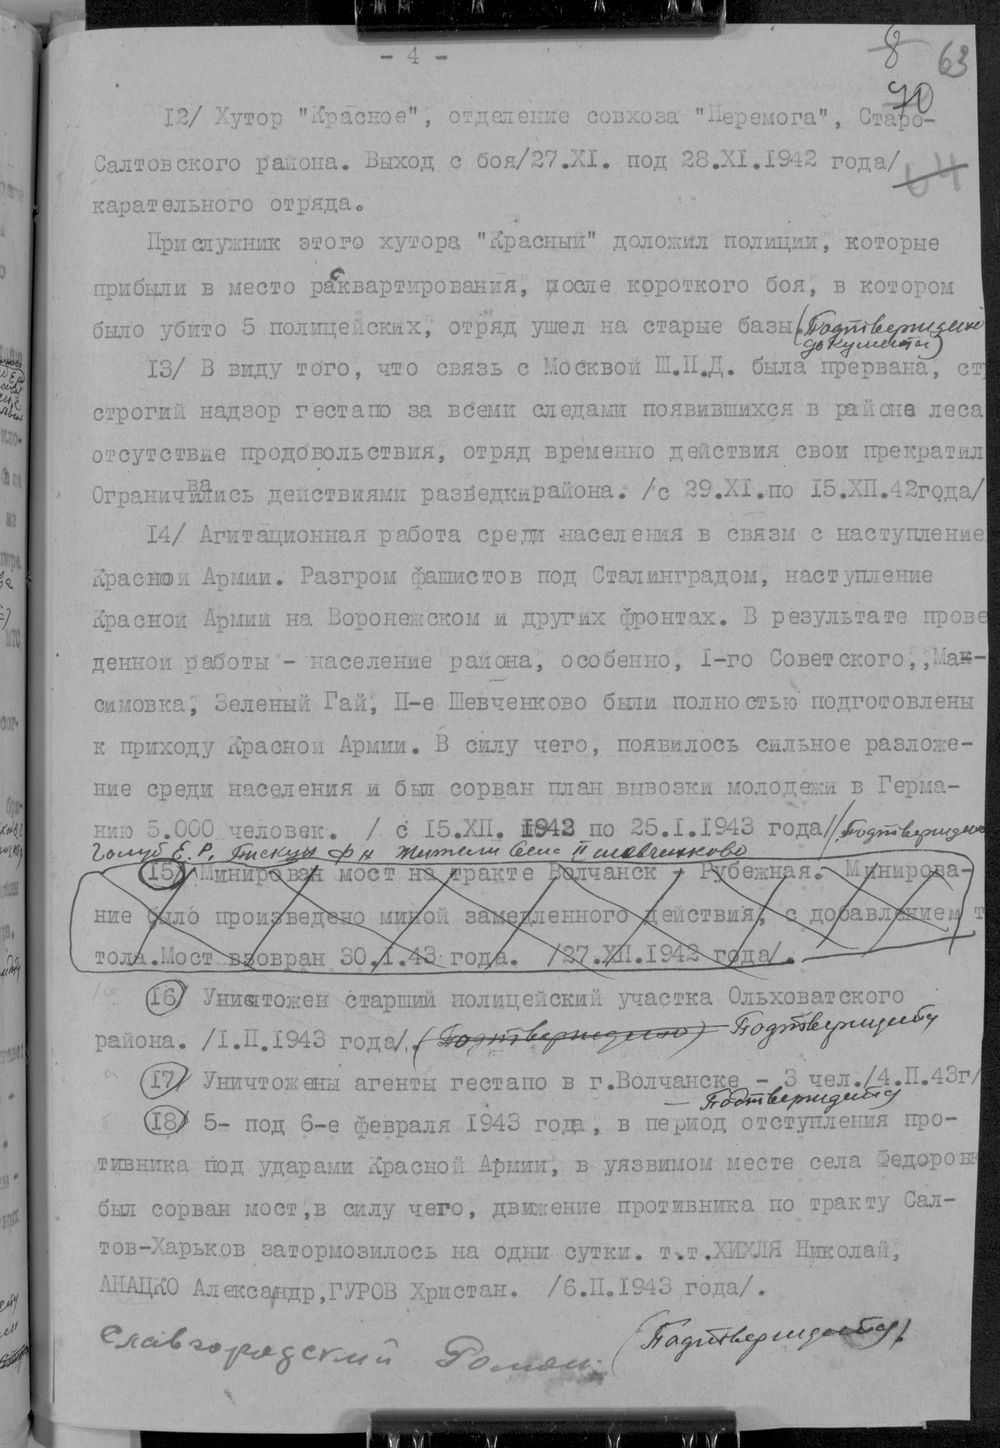 - 4 -
8 63
70
64
12/ Хутор "Красное", отделение совхоза "Перемога", Старо-
Салтовского района. Выход с боя/27.XI. под 28.XI.1942 года/
карательного отряда.
Прислужник этого хутора "Красный" доложил полиции, которые
прибыли в место расквартирования, после короткого боя, в котором
было убито 5 полицейских, отряд ушел на старые базы. (Подтверждено
документы)
13/ В виду того, что связь с Москвой Ш.П.Д. была прервана, ст
строгий надзор гестапо за всеми следами появившихся в районе леса
отсутствие продовольствия, отряд временно действия свои прекратил
Ограничивались действиями разведки района. /с 29.XI.по 15.XII.42года/
14/ Агитационная работа среди населения в связи с наступление
Красной Армии. Разгром фашистов под Сталинградом, наступление
Красной Армии на Воронежском и других фронтах. В результате прове
денной работы - население района, особенно, 1-го Советского,,Мак-
симовка, Зеленый Гай, П-е Шевченково были полностью подготовлены
к приходу Красной Армии. В силу чего, появилось сильное разложе-
ние среди населения и был сорван план вывозки молодежи в Герма-
нию 5.000 человек. / с 15.XII. 1942 по 25.I.1943 года// Подтверждено
Голуб Е.Р. Пискун Ф Н жители села II шевченково
15/ Минирован мост на тракте Волчанск - Рубежная. Минирова-
ние было произведено миной замедленного действия, с добавлением т
тола.Мост взовран 30.I.43 года. /27.XII.1942 года/.
16/ Уничтожен старший полицейский участка Ольховатского
района. /I.II.1943 года/. (Подтверждено) Подтверждену
17/ Уничтожены агенты гестапо в г.Волчанске - 3 чел./4.II.43г/
— Подтверждену
18/ 5- под 6-е февраля 1943 года, в период отступления про-
тивника под ударами Красной Армии, в уязвимом месте села Федоровк
был сорван мост,в силу чего, движение противника по тракту Сал-
тов-Харьков затормозилось на одни сутки. т.т.ХИХЛЯ Николай,
АНАЦКО Александр,ГУРОВ Христан. /6.II.1943 года/.
Славгородский Роман. (Подтверждену)